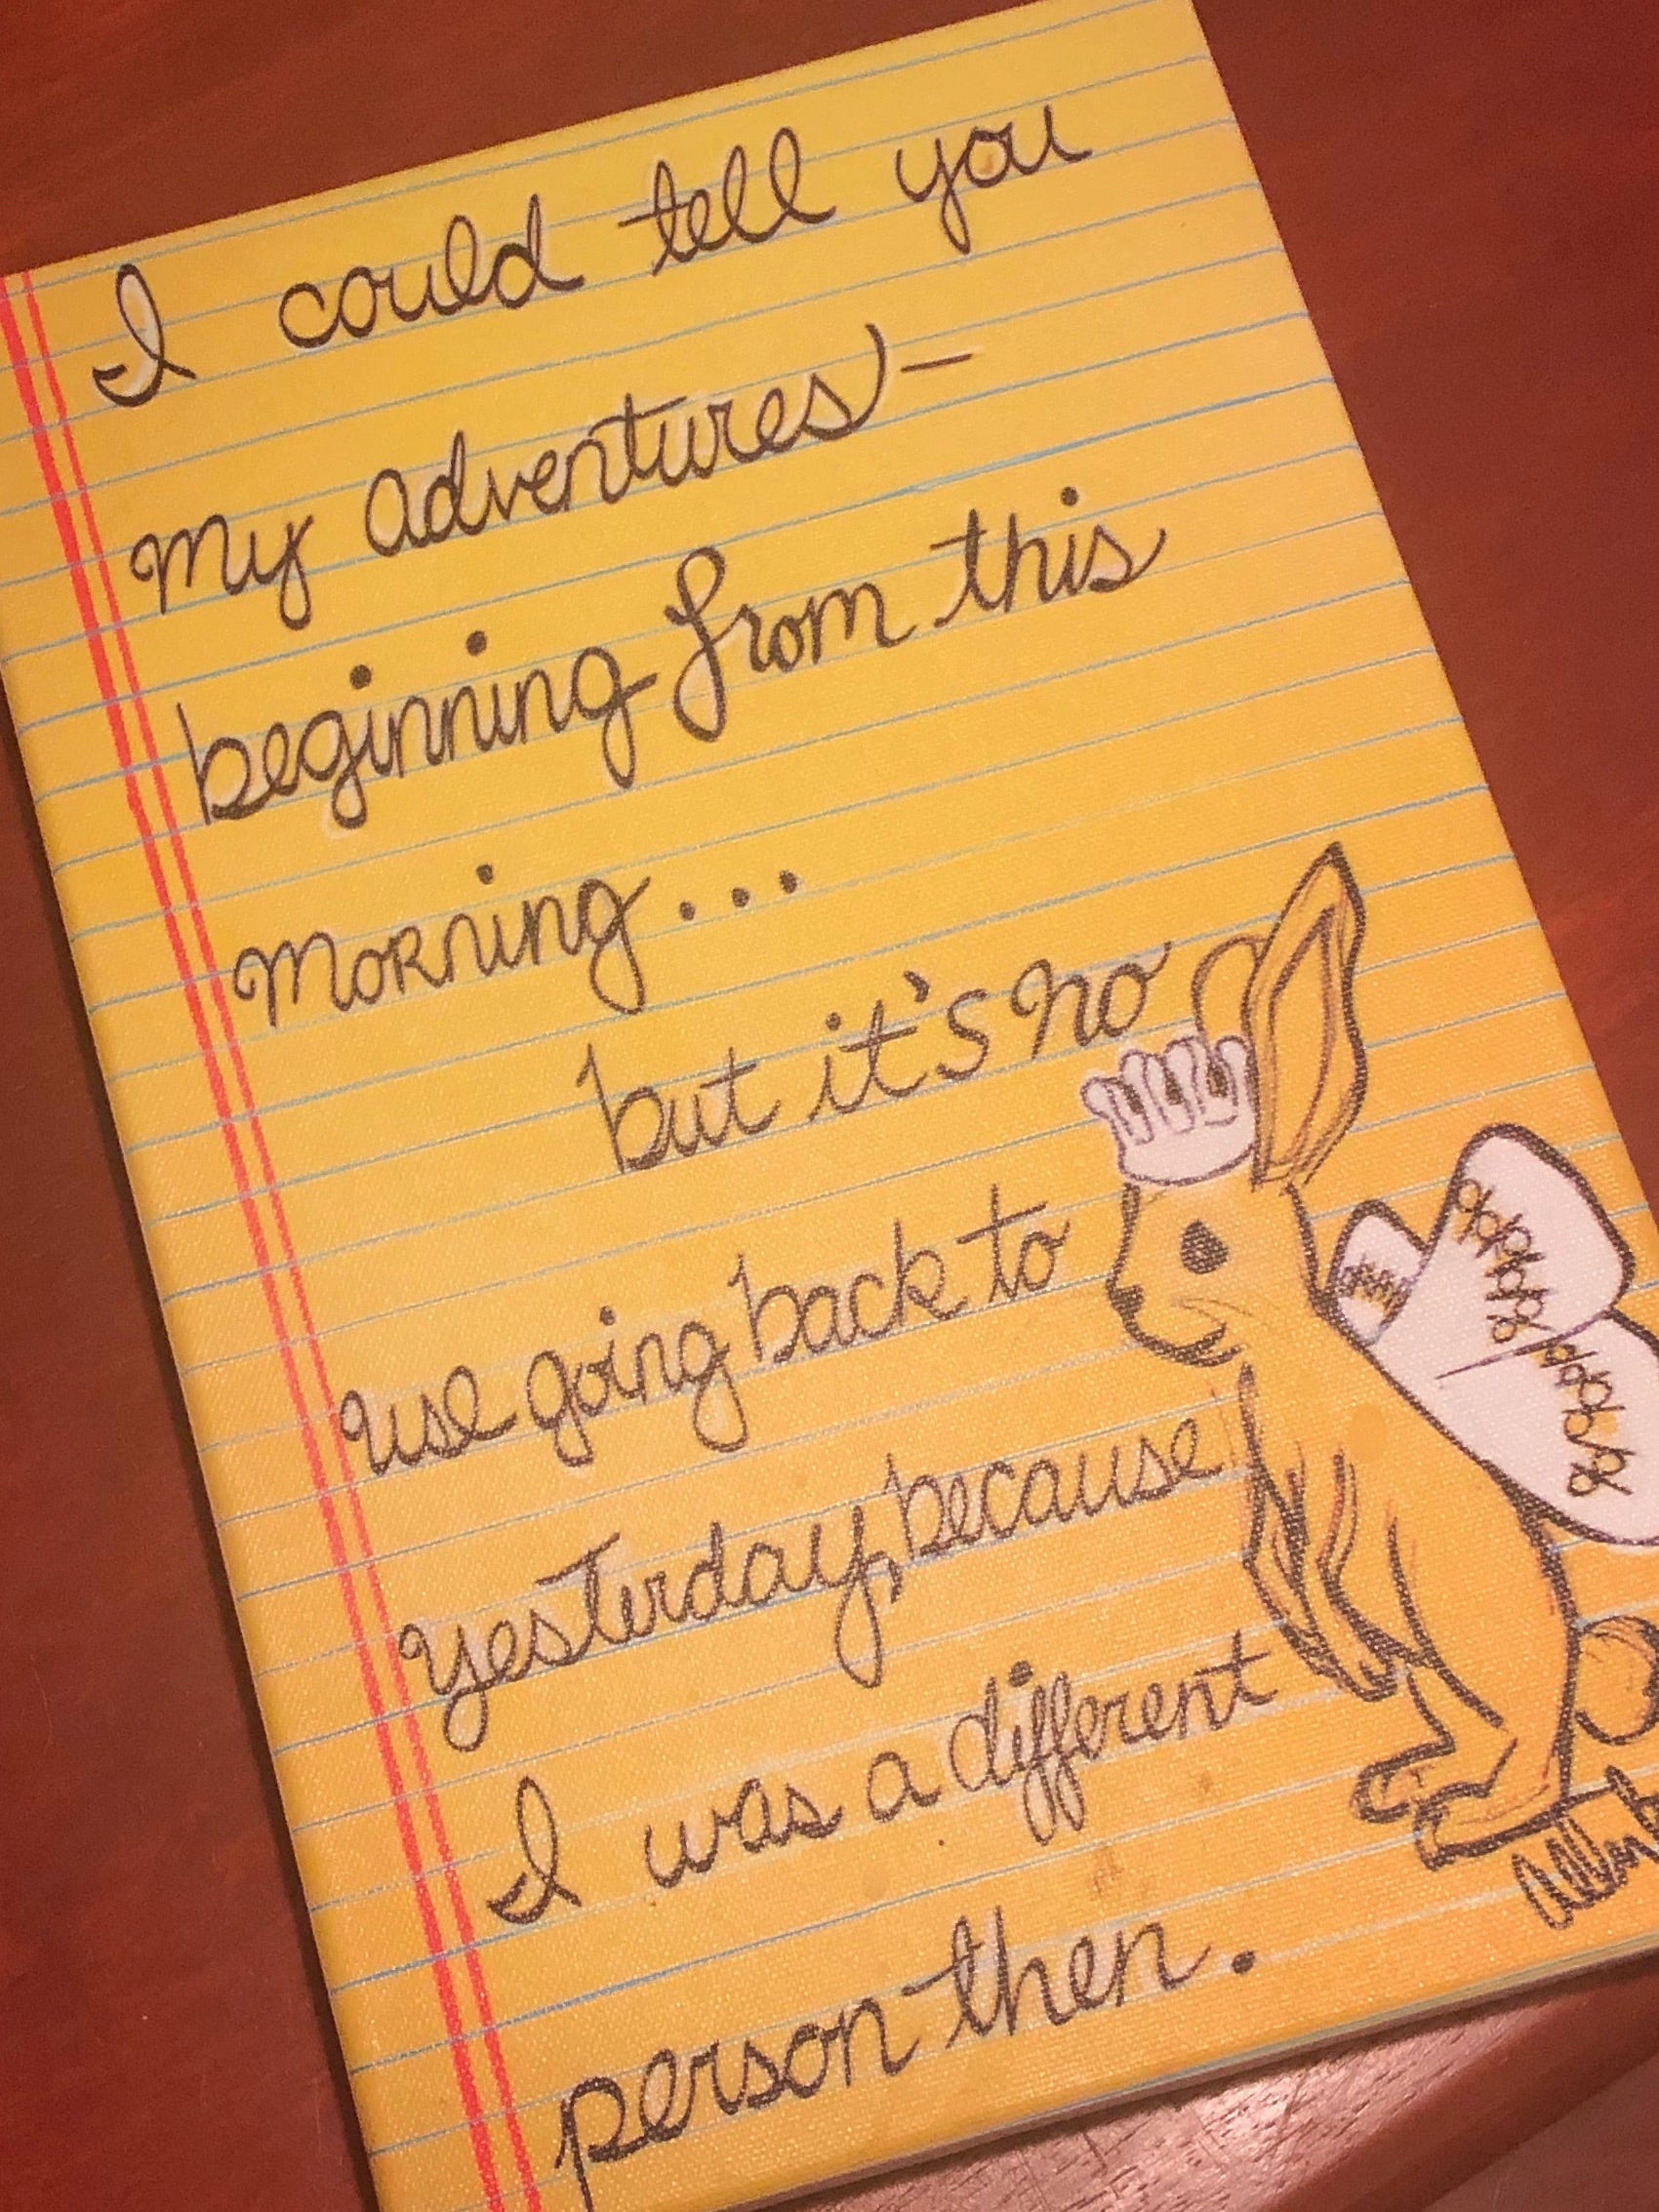 I could tell you
my adventures—
beginning from this
morning...
but it's no
use going back to
yesterday, because
I was a different
person then.